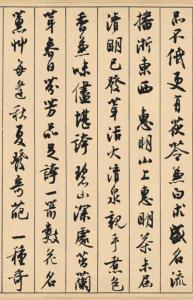 品不低更有茯苓兼白朮盛名流
播浙東西 惠明山上惠明茶未屆
清明已發芽活火清泉親手煮色
香兼味儘堪誇 碧山深處茁蘭
芽春日芬芳品足誇一箭數花名
蕙草每逢秋夏發奇葩 一種奇